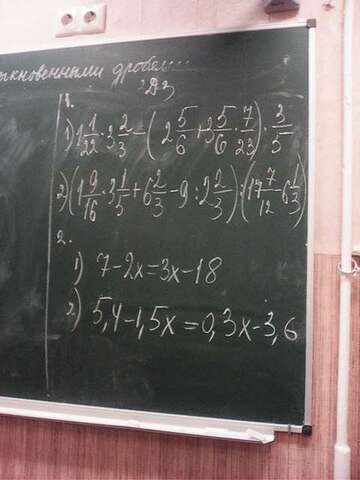 ыкновенными дробям...
ДЗ
1.
1) 1 1/22 · 3 2/3 - (2 5/6 + 3 5/6 · 7/23) · 3/5
2) (1 9/16 · 3 1/5 + 6 2/3 - 9 · 2 2/3) : (17 7/12 · 6 1/3)
2.
1) 7-2x=3x-18
2) 5,4-1,5x=0,3x-3,6